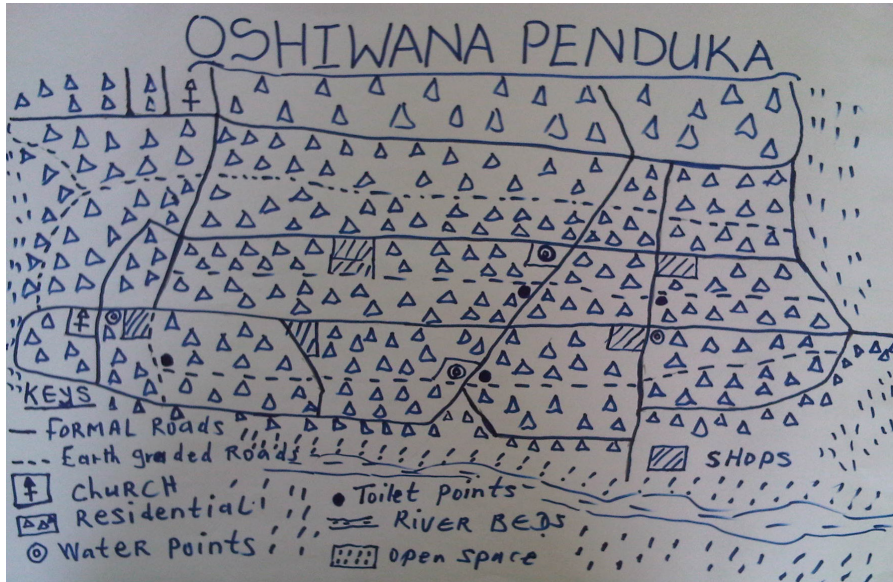 OSHIWANA PENDUKA
KEYS
FORMAL Roads
Earth graded Roads
CHURCH
Residential
Water Points
SHOPS
Toilet Points
RIVER BEDS
open space